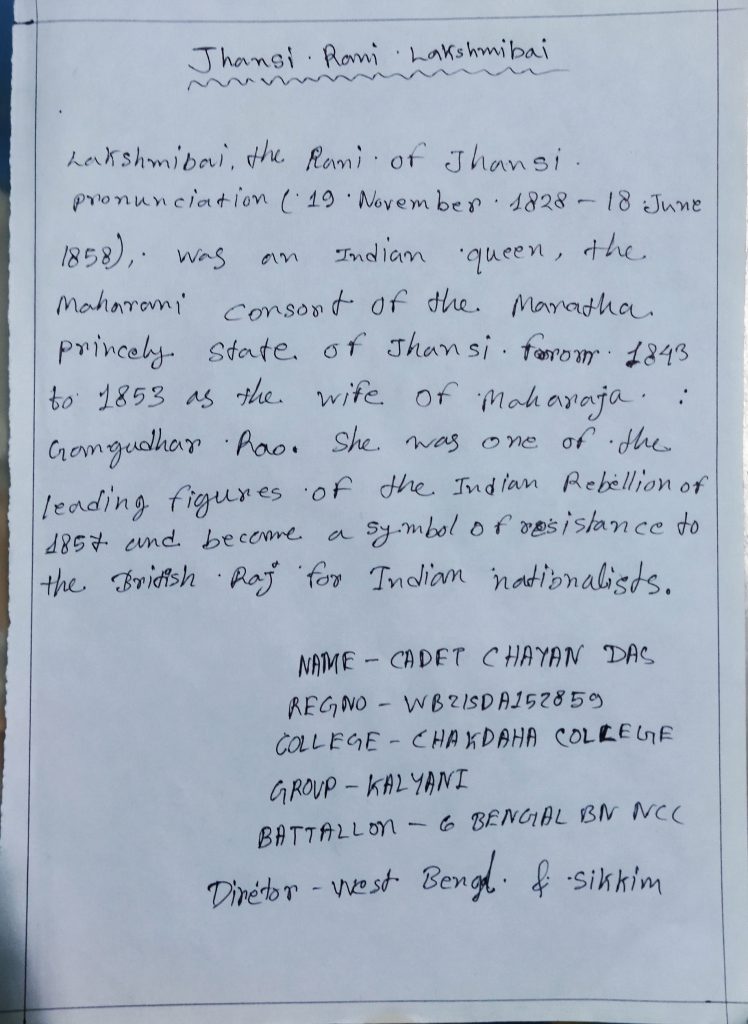 Jhansi Rani Lakshmibai
Lakshmibai, the Rani of Jhansi.
pronunciation (19 November 1828 – 18 June
1858), was an Indian queen, the
Maharani consort of the Maratha
princely state of Jhansi from 1843
to 1853 as the wife of Maharaja :
Gamgudhar Rao. She was one of the
leading figures of the Indian Rebellion of
1857 and become a symbol of resistance to
the British Raj for Indian nationalists.
NAME – CADET CHAYAN DAS
REGNO – WB21SDA152859
COLLEGE – CHAKDAHA COLLEGE
GROUP – KALYANI
BATTALLON – 6 BENGAL BN NCC
Diretor – West Bengl. & Sikkim